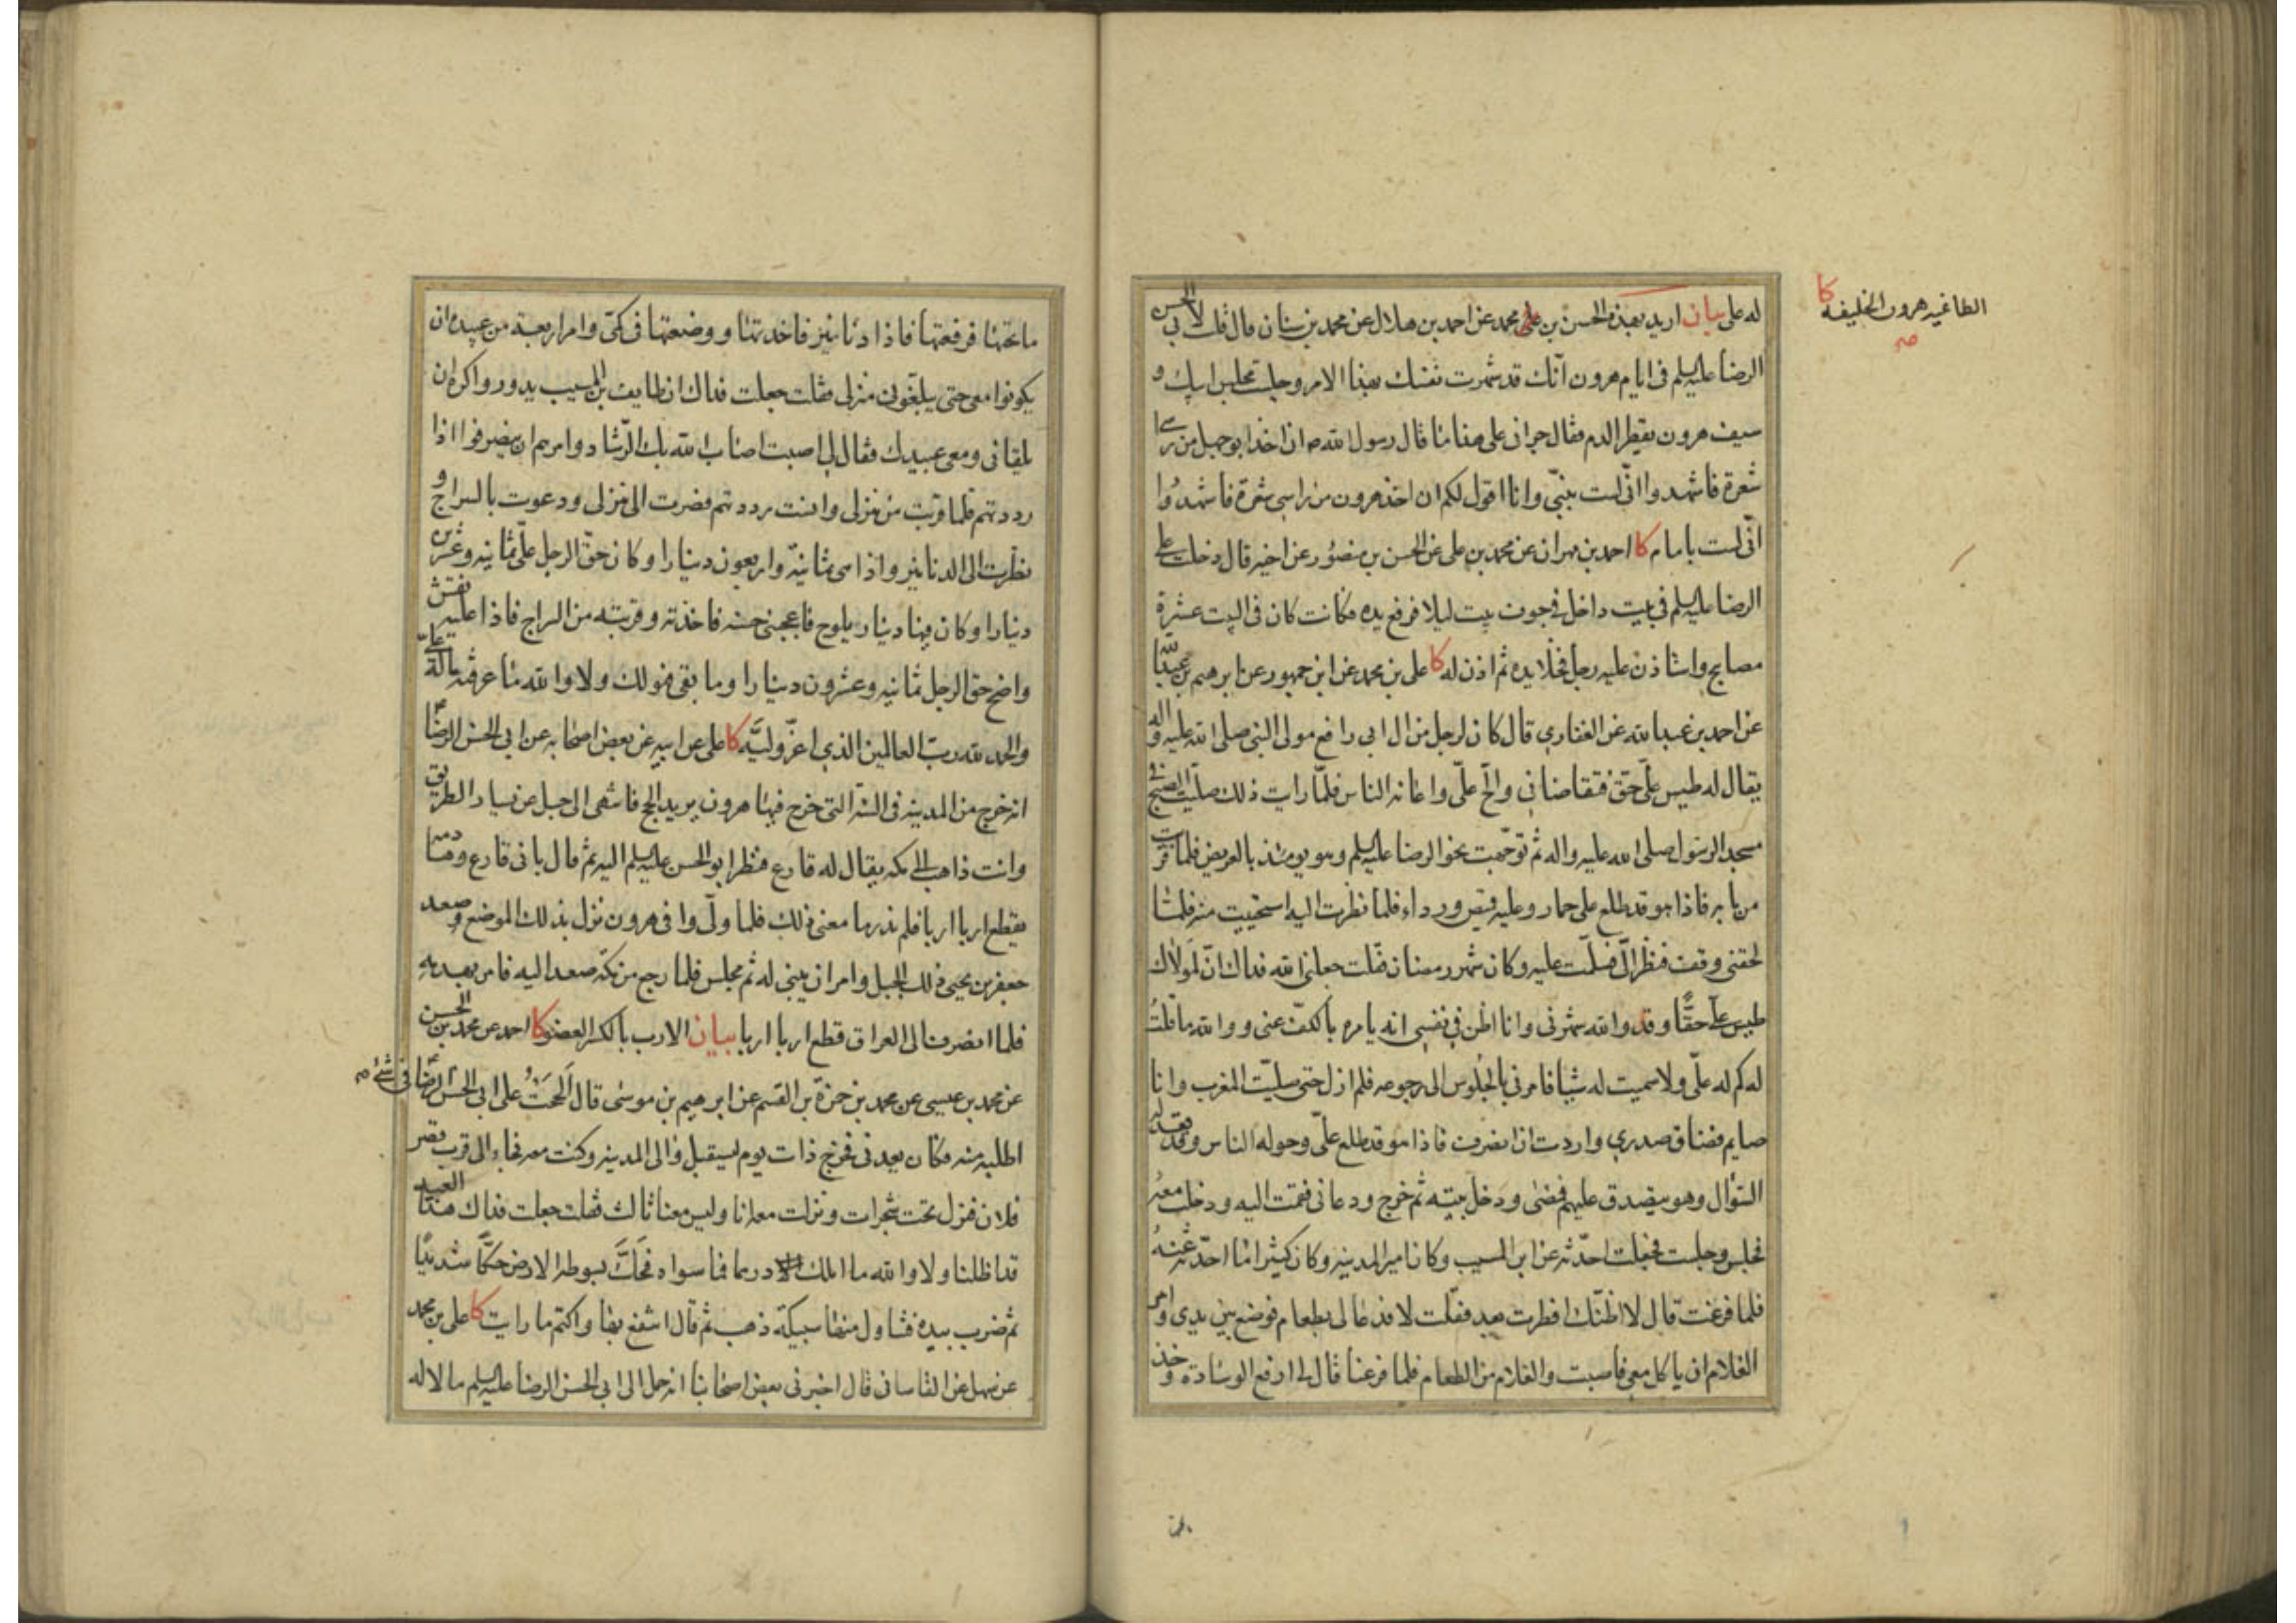 له على بيان اريد بهذه الحسن بن على محمد عن احمد بن هلال عن محمد بن سنان قال قلت لابي الحسن
الرضا عليه السلم في ايام هرون انك قد شهرت نفسك بهذا الامر وجلست مجلس ابيك و
سيف هرون يقطر الدم فقال جرانى على هذا ما قال رسول الله ص ان اخذ ابو جهل من راسى
شعرة فاشهدوا انّى لست بنبيّ وانا اقول لكم ان اخذ هرون من راسى شعرة فاشهدُوا
انّى لست بامام كا احمد بن مهران عن محمد بن على عن الحسن بن منصُور عن اخيه قال دخلت على
الرضا عليه السلم في بيت داخل في جوف بيت ليلا فرفع يده فكانت كان في البيت عشرة
مصابيح واستاذن عليه رجل فخلا يده ثم اذن له كا على بن محمد عن ابن جمهور عن ابرهيم بن عبد الله
عن احمد بن عبد الله عن الغفاري قال كان لرجل من ال ابي رافع مولى النبي صلى الله عليه واله
يقال له طيس علىّ حق فتقاضانى والحّ علىّ واعانه الناس فلمّا رايت ذلك صليت الصبح في
مسجد الرسول صلى الله عليه واله ثم توجّهت نحو الرضا عليه السلم وهو يومئذ بالعريض فلما قربت
من بابه فاذا هو قد طلع على حمار وعليه قميص ورداء فلما نظرت اليه استحييت منه فلما
لحقنى وقف فنظر الىّ فسلّمت عليه وكان شهر رمضان فقلت جعلنى الله فداك انّ لمولاك
طيس علىّ حقًّا وقد والله شهرنى وانا اظن في نفسى انه يامره بالكفّ عنى ووالله ما قلتُ
له كم له علىّ ولا سميت له شيئا فامرنى بالجلوس الى رجوعه فلم ازل حتى صليّت المغرب وانا
صايم فضاق صدرى واردت ان انصرف فاذا هو قد طلع علىّ وحوله الناس وقد قعد له
السّؤال وهو يتصدق عليهم فمضى ودخل بيته ثم خرج ودعانى فقمت اليه ودخلت معهُ
فجلس وجلست فجعلت احدّثه عن ابن المسيب وكان امير المدينه وكان كثيرا ما احدّثه عنهُ
فلما فرغت قال لا اظنّك افطرت بعد فقلت لا فدعا لى بطعام فوضع بين يدى وامر
الغلام ان ياكل معى فاصبت والغلام من الطعام فلما فرغنا قال لى ارفع الوسادة وخذ
الطاغيه هرون الخليفه كا
صح
ما تحتها فرفعتها فاذا دنانير فاخذتها ووضعتها في كمّى وامر اربعة من عبيده ان
يكونوا معى حتى يبلّغونى منزلى فقلت جعلت فداك ان طايف بن المسيب يدور واكره ان
يلقانى ومعى عبيدك فقال لى اصبت اصاب الله بك الرّشاد وامرهم ان ينصرفوا اذا
رددتهم فلما قربت من منزلى وانست رددتهم فصرت الى منزلى ودعوت بالسراج و
نظرت الى الدنانير واذا هى ثمانية واربعون دينارا وكان حقّ الرجل علىّ ثمانيه وعشرين
دينارا وكان فيها دينار يلوح فاعجبنى حسنه فاخذته وقربته من السراج فاذا عليه نقش
واضح حق الرجل ثمانيه وعشرون دينارا وما بقى فهو لك ولا والله ما عرفت ماله علىّ
والحمد لله ربّ العالمين الذي اعزّ وليَّه كا على عن ابيه عن بعض اصحابه عن ابي الحسن الرضا
انه خرج من المدينه في السنة التى خرج فيها هرون يريد الحج فانتهى الى جبل عن يسار الطريق
وانت ذاهب الى مكه يقال له فارع فنظر ابو الحسن عليه السلم اليه ثم قال بانى فارع وهادمه
يقطع اربا اربا فلم ندر ما معنى ذلك فلما ولّى وافى هرون نزل بذلك الموضع وصعد
جعفر بن يحيى ذلك الجبل وامر ان يبنى له ثم مجلس فلما رجع من مكه صعد اليه فامر بهدمه
فلما انصرف الى العراق قطع اربا اربا بيان الارب بالكسر العضو كا احمد عن محمد بن الحسن
عن محمد بن عيسى عن محمد بن حمزة بن القسم عن ابرهيم بن موسى قال اَلححتُ على ابي الحسن الرضا في شئ ص
اطلبه منه فكان يعدنى فخرج ذات يوم ليستقبل والى المدينه وكنت معه فجاء الى قرب قصر
فلان فنزل تحت شجرات ونزلت معه انا وليس معنا ثالث فقلت جعلت فداك هذا العيد
قد اظلنا ولا والله ما املك درهما فما سواه فحكَّ بسوطه الارض حكًّا شديدًا
ثم ضرب بيده فتناول منها سبيكة ذهب ثم قال انتفع بها واكتم ما رايت كا على بن محمد
عن سهل عن القاسانى قال اخبرنى بعض اصحابنا انه حمل الى ابي الحسن الرضا عليه السلم مالا له